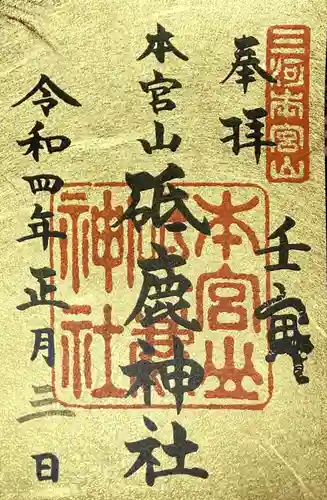 三河本宮山
奉拝
壬寅
本宮山
砥鹿神社
本宮山
砥鹿
神社
令和四年正月三日